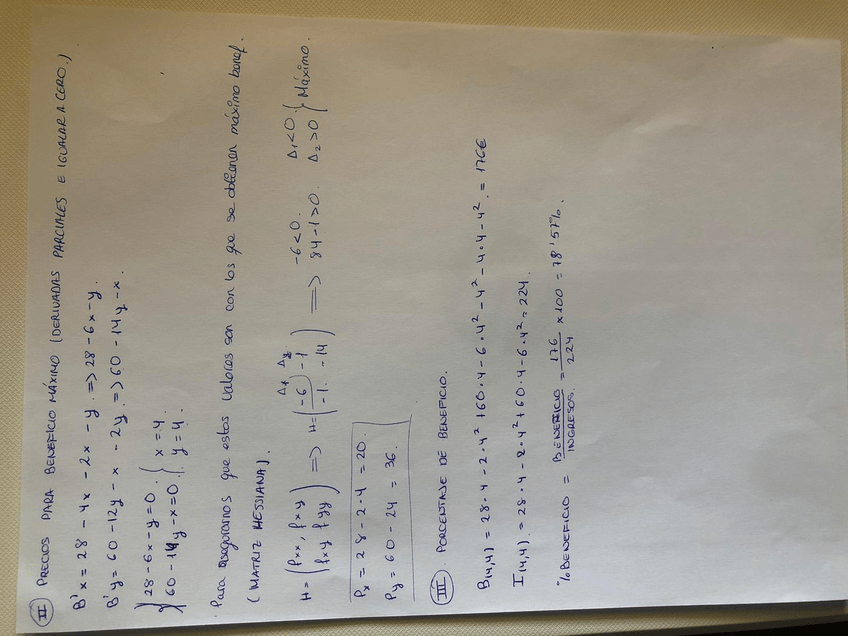 II PRECIOS PARA BENEFICIO MÁXIMO (DERIVADAS PARCIALES E IGUALAR A CERO.)
B'x = 28 - 4x - 2x - y. => 28 - 6x - y.
B'y = 60 - 12y - x - 2y => 60 - 14y - x.
28 - 6x - y = 0. { x = 4.
60 - 14y - x = 0. { y = 4.
· Para asegurarnos que estos valores son con los que se obtienen máximo benef.
(MATRIZ HESSIANA).
Δx Δy
H = (fxx, fxy => H = (-6 -1 => -6 < 0. Δ1 < 0. } Máximo.
fxy fyy) -1. -14) 84 - 1 > 0. Δ2 > 0
Px = 28 - 2·4 = 20.
Py = 60 - 24 = 36.
III PORCENTAJE DE BENEFICIO.
B(4,4) = 28·4 - 2·4² + 60·4 - 6·4² - 4² - 4·4 - 4². = 176€
I(4,4). = 28·4 - 2·4² + 60·4 - 6·4² = 224.
% BENEFICIO = BENEFICIO / INGRESOS. = 176 / 224 x 100 = 78'57%.